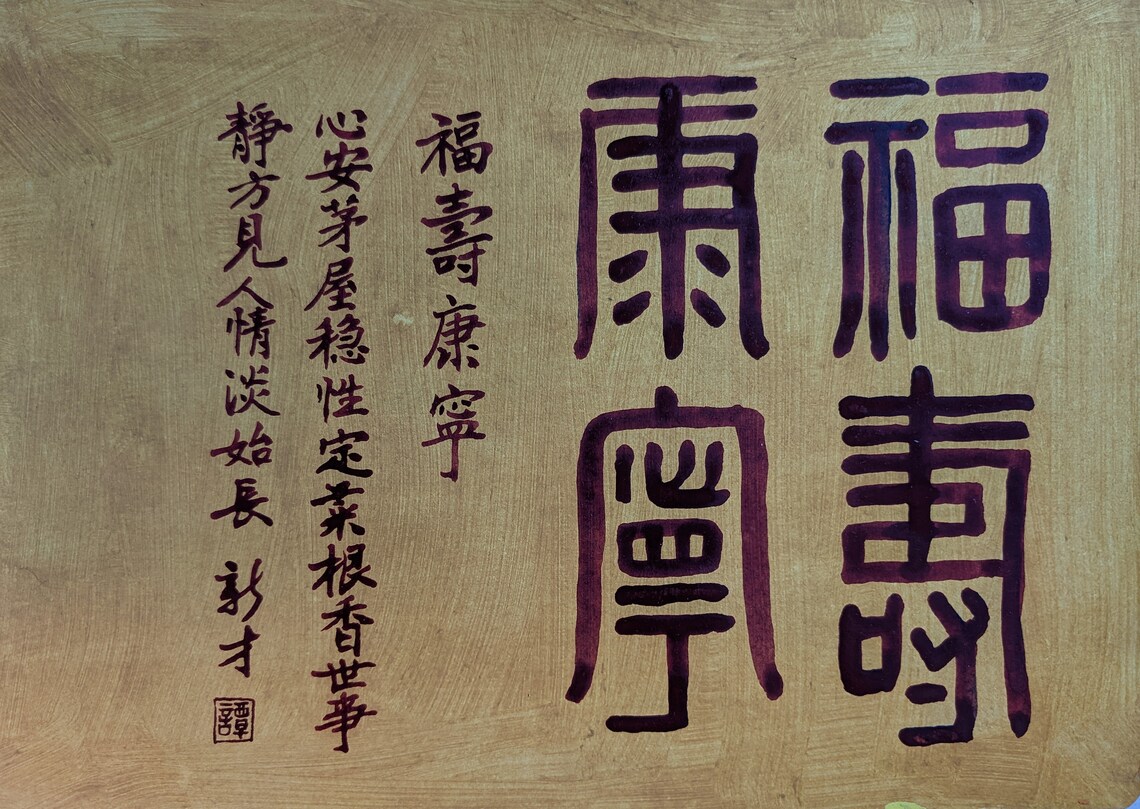 福壽
康寧
福壽康寧
心安茅屋稳性定菜根香世事
靜方見人情淡始長 新才
譚